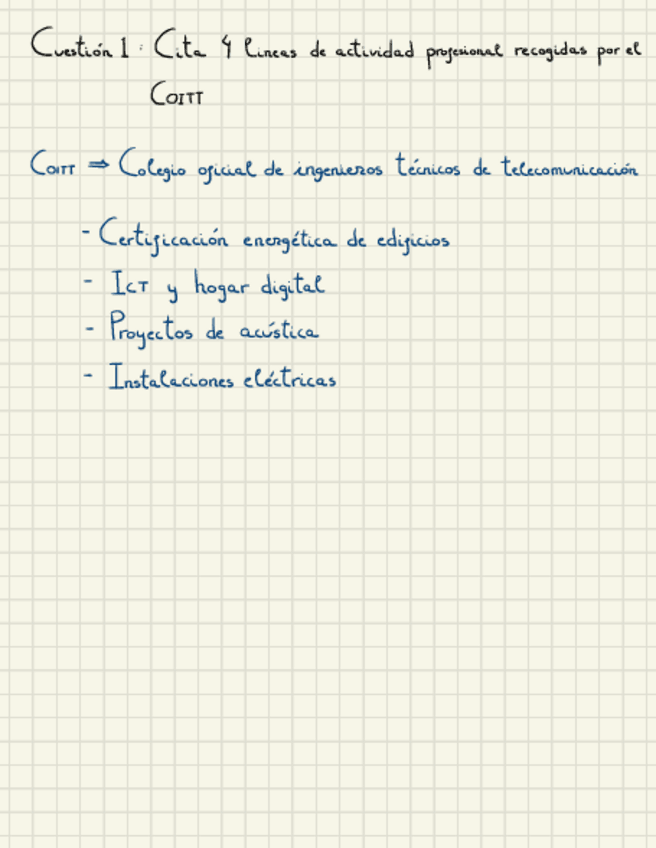 Cuestión 1: Cita 4 lineas de actividad profesional recogidas por el
COITT
COITT ⇒ Colegio oficial de ingenieros técnicos de telecomunicación
- Certificación energética de edificios
- ICT y hogar digital
- Proyectos de acústica
- Instalaciones eléctricas